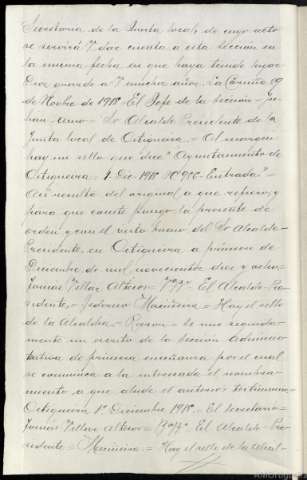 Secretaria de la Junta local, de cuyo acto
se servirá V. dar cuenta a esta Sección en
la misma fecha en que haya tenido lugar
Dios guarde a V. muchos años. La Coruña 29
de Nobre de 1918. El Jefe de la Sección =
= Sr Alcalde Presidente de la
Junta local de Ortigueira = Al margen
hay un sello que dice "Ayuntamiento de
Ortigueira = 1 Dic 1918 Nº 915 = Entrada" =
Así resulta del original a que refiero; y
para que conste pongo la presente de
orden y con el visto bueno del Sr Alcalde
Presidente, en Ortigueira a primero de
Diciembre de mil novecientos diez y ocho =
Villar = El Alcalde Pre
sidente, = Federico Maciñeira = Hay el sello
de la Alcaldía. =
mente un escrito de la Sección Adminis
trativa de primera enseñanza por el cual
se comunica a la interesada el nombra
miento a que alude el anterior testimonio
Ortigueira 1º Diciembre 1918. El Secretario
Villar = El Alcalde Pre
sidente = Maciñeira = Hay el sello de la Alcal-